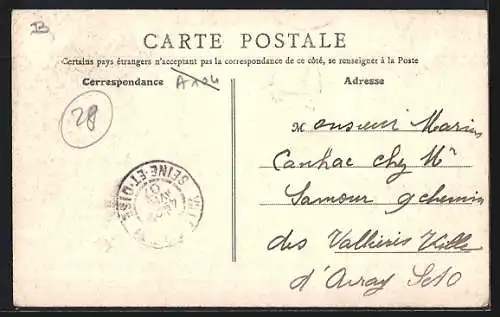 B
CARTE POSTALE
Certains pays étrangers n'acceptant pas la correspondance de ce côté, se renseigner à la Poste
Correspondance
A104
Adresse
28
Monsieur Marius
Canhac chez Mr
Lamour 9 chemin
des Vallières Ville
d'Avray S&O
SEINE-ET-OISE